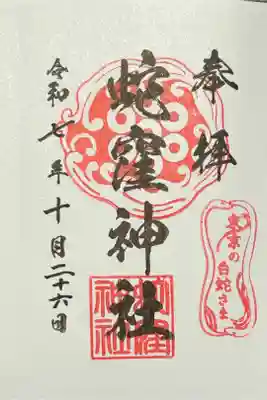 奉拝
東京の
白蛇さま
蛇窪神社
蛇窪
神社
令和七年十月二十六日